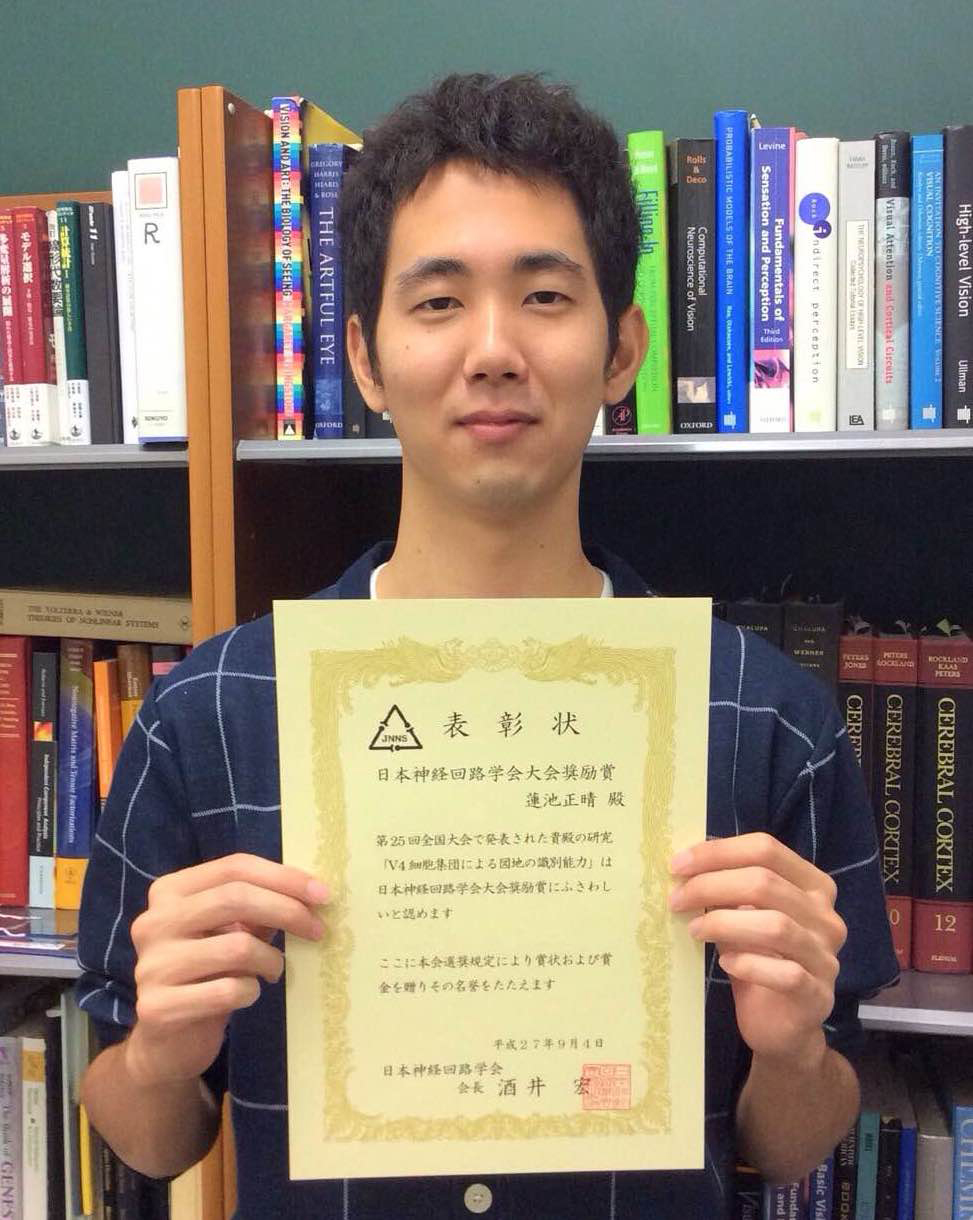 VISION AND ART: THE BIOLOGY OF SEEING
GREGORY
HARRIS
HEARD
& ROSE
THE ARTFUL EYE
OXFORD
R
モデル選択
計算統計 I
多変量解析の展開
Filling-In
Rolls
&
Deco
Computational
Neuroscience of Vision
OXFORD
PROBABILISTIC MODELS OF THE BRAIN
Rao, Olshausen, and Lewicki, editors
Levine
Fundamentals of
Sensation and Perception
Third
Edition
Rock
indirect perception
THE NEUROPSYCHOLOGY OF HIGH-LEVEL VISION
Collected Tutorial Essays
LEA
Visual Attention and Cortical Circuits
AN INVITATION TO COGNITIVE SCIENCE
VISUAL COGNITION
High-level Vision
Ullman
THE VOLTERRA & WIENER
THEORIES OF NONLINEAR SYSTEMS
Independent Component Analysis
Principles and Practice
Nonnegative Matrix and Tensor Factorizations
JNNS
表彰状
日本神経回路学会大会奨励賞
蓮池正晴 殿
第25回全国大会で発表された貴殿の研究
「V4細胞集団による図地の識別能力」は
日本神経回路学会大会奨励賞にふさわし
いと認めます
ここに本会選奨規定により賞状および賞
金を贈りその名誉をたたえます
平成27年9月4日
日本神経回路学会
会長 酒井 宏
CHALUPA
AND
WERNER
PETERS
JONES
PETERS
ROCKLAND
CEREBRAL CORTEX
ROCKLAND
KAAS
PETERS
CEREBRAL CORTEX
12
The Book of
GENES
Basic Vision